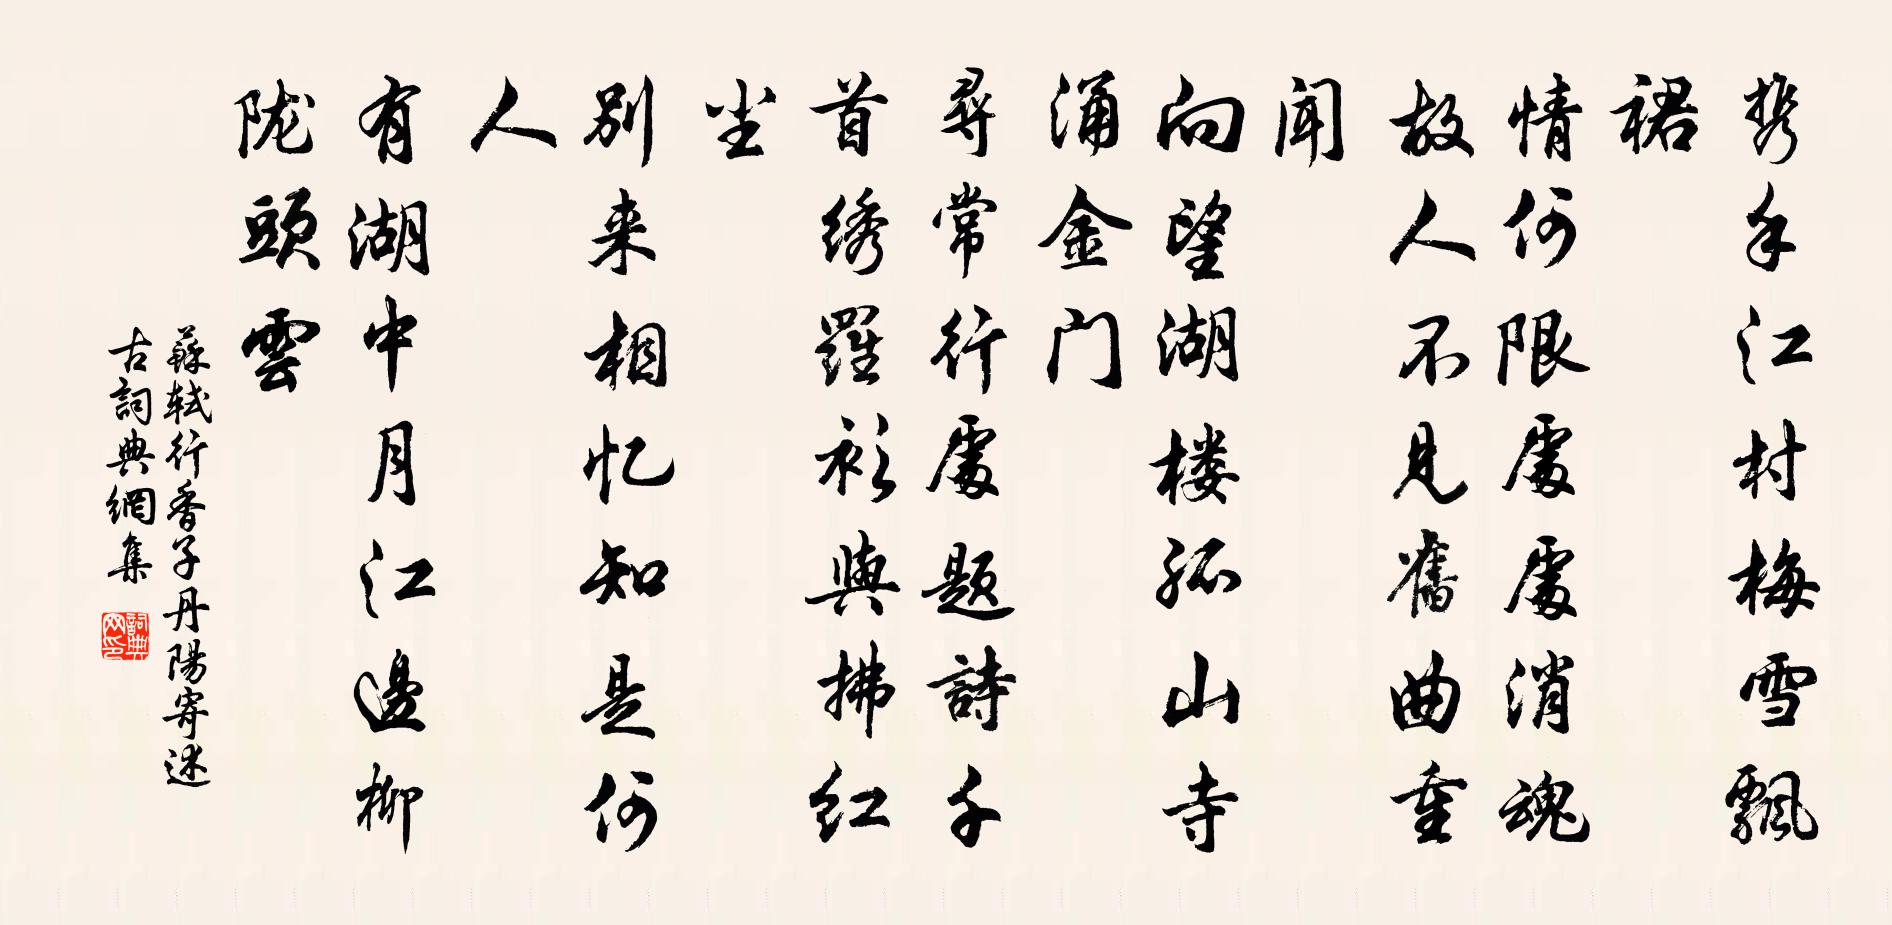 携手江村梅雪飄
裙
情何限處處消魂
故人不見舊曲重
闻
向望湖楼孤山寺
涌金门
尋常行處題詩千
首绣羅衫與拂红
尘
别来相忆知是何
人
有湖中月江邊柳
陇頭雲
蘇軾行香子丹陽寄述
古詞典網集
詞典网印